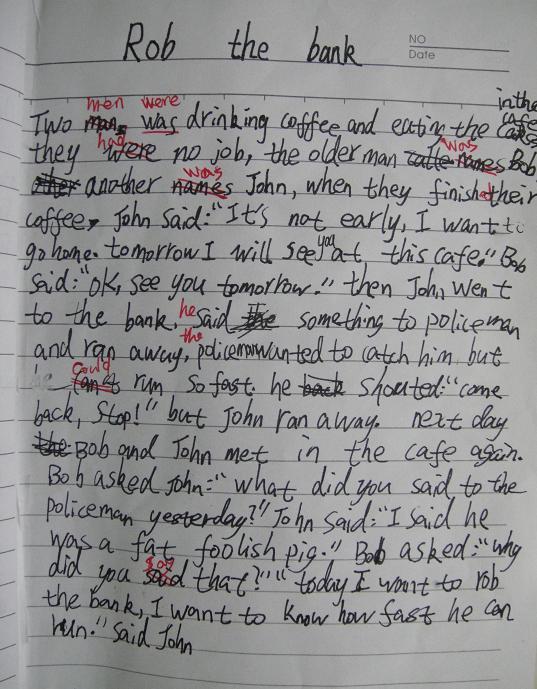 Rob the bank
NO
Date
in the
cafe
men were
Two man was drinking coffee and eating the cakes
had was
they were no job, the older man names Bob
was
another names John, when they finished their
coffee, John said: "It's not early, I want to
go home. tomorrow I will see you at this cafe." Bob
said: "ok, see you tomorrow." then John went
to the bank, he said something to policeman
the
and ran away, policeman wanted to catch him but
could
he run so fast. he back shouted: "come
back, stop!" but John ran away. next day
the Bob and John met in the cafe again.
Bob asked John: "what did you said to the
policeman yesterday?" John said: "I said he
was a fat foolish pig." Bob asked: "why
say
did you said that?" "today I want to rob
the bank, I want to know how fast he can
run." said John